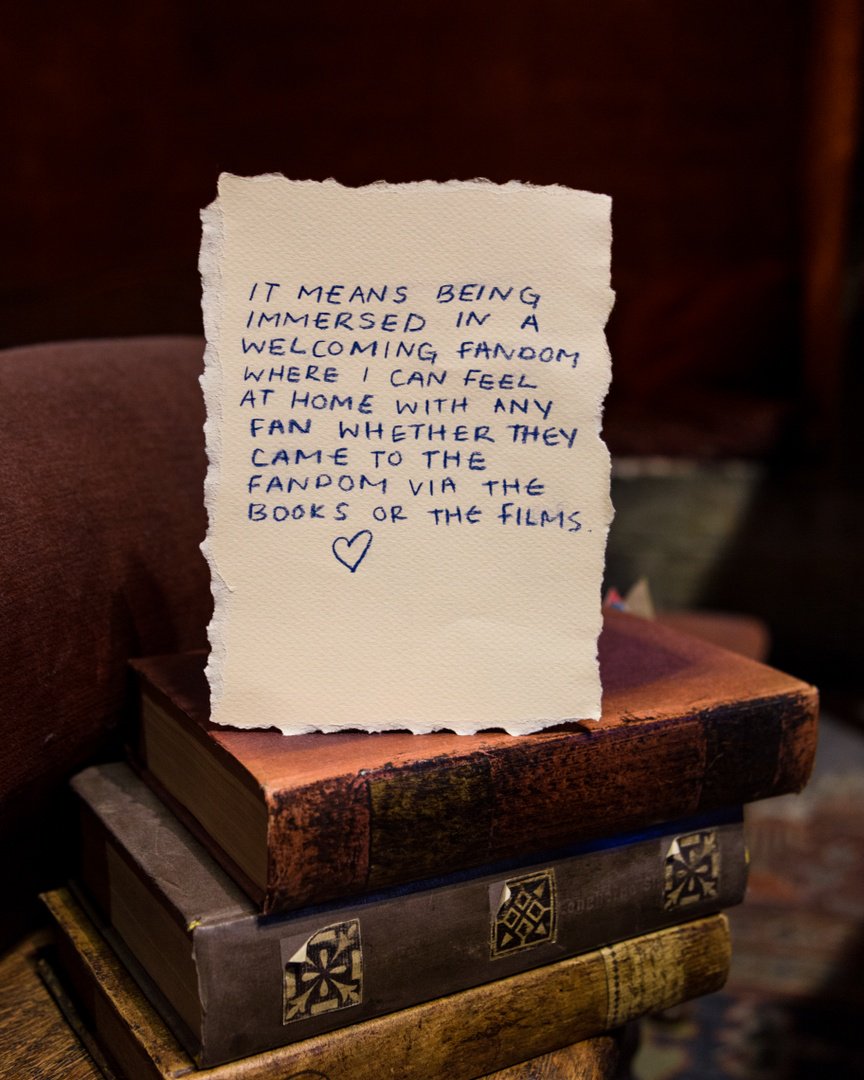 IT MEANS BEING
IMMERSED IN A
WELCOMING FANDOM
WHERE I CAN FEEL
AT HOME WITH ANY
FAN WHETHER THEY
CAME TO THE
FANDOM VIA THE
BOOKS OR THE FILMS.